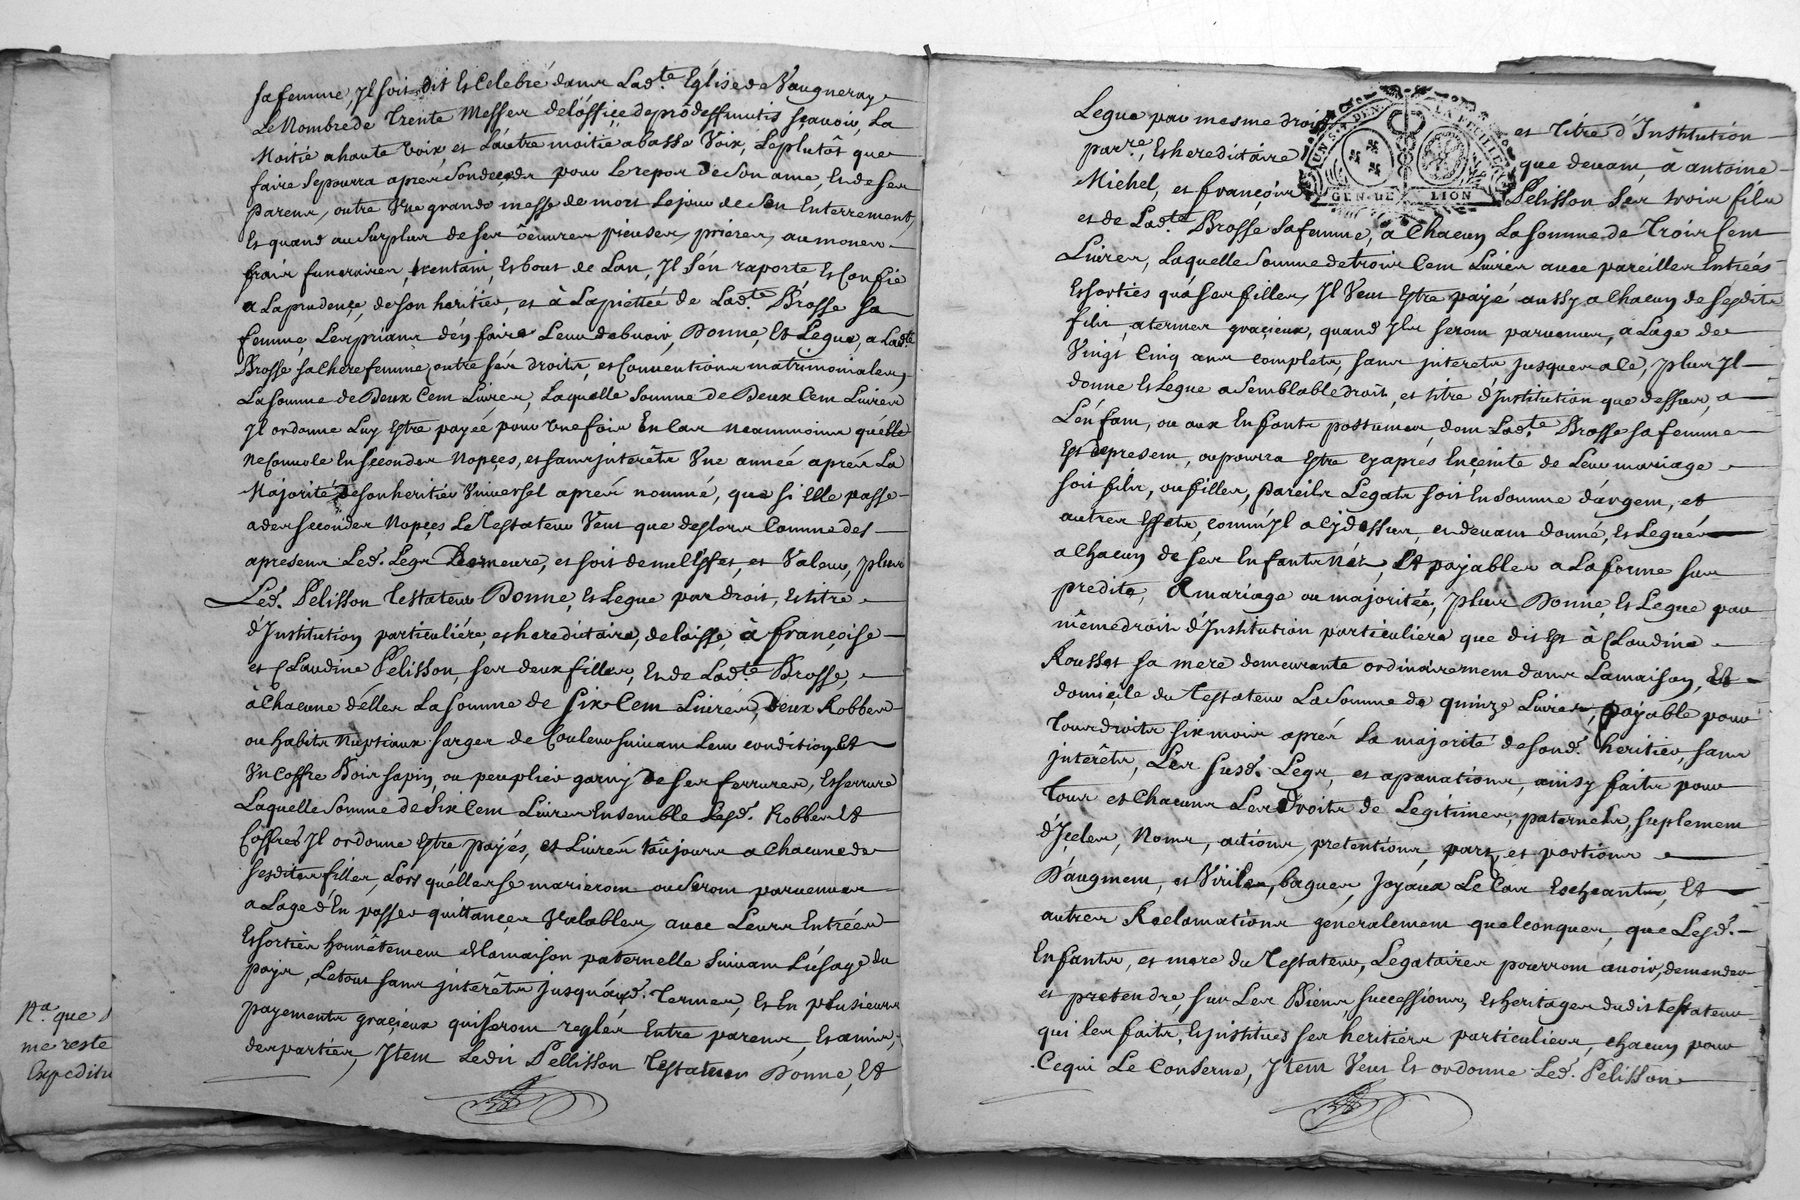 sa femme, Jl soit dit Et Celebré dans Lad.te Eglise de Vaugneray
Le Nombre de Trente Messes de l'óffice de pro deffunctis sçavoir, La
Moitié a haute Voix, et L'autre moitié a basse Voix, Le plutôt que
faire Se pourra apres Son decedz pour Le repos De Son ame, Et de ses
Parens, outre Vne grande messe de mort Le jour de Son Enterrement,
Et quand au Surplus de ses oeuvres pieuses, prieres, aumones
frais funeraires, trentain, Et bout de Lan, Jl S'en raporte Et Confie
a La prudençe, de son heritier, et à La pietteé de Lad.te Brosse Sa
femme, Les priant d'en faire Leur debvoir, Donne, Et Legue, a Lad.te
Brosse sa Chere femme outre ses droits, et Conventions matrimoniales,
La Somme de Deux Cent Livres, Laquelle Somme de Deux Cent Livres
Jl ordonne Luy Estre payée pour Vne fois En Cas neammoins qu'elle
ne Convole En Secondes Nopçes, et sans interêts Vne année aprés La
Majorité de son heritier Vniversel aprés nommé, que si Elle passe
a des secondes Nopçes Le Testateur Veut que deslors Comme des
apresent Led. Legs Demeure, et soit de nul Effet, et Valeur, plus
Led. Pelisson Testateur Donne, Et Legue par droit, Et titre
d'Institution particuliére, et hereditaire, delaisse, à françoise
et Claudine Pelisson, ses deux filles, Et de Lad.te Brosse,
à Chacune d'elles La Somme de Six Cent Livres, Deux Robbes
ou habits Nuptiaux sarges de Couleur suivant Leur condition, Et
Vn Coffre Bois sapin, ou peuplier garny De ses ferrures, Et serrure
Laquelle Somme de Six Cent Livres Ensemble Lesd. Robbes Et
Coffres Jl ordonne Estre payés, et Livrés toûjours a Chacune de
sesdites filles, Lors qu'elles se marieront ou Seront parvenues
a Lage d'En passer quittançes Valables, avec Leurs Entrées
Et sorties honnêtement En La maison paternelle Suivant L'usage du
pays, Le tout sans interêts jusqu'ausd. Termes, Et En plusieurs
payements graçieux qui seront reglés Entre parens, Et amis,
des parties, Jtem Ledit Pellisson Testateur Donne, Et
N.a que
me reste
Expediti
Legue par mesme droit et titre d'Institution
par.re, Et hereditaire que devant, à antoine
Michel, et françois Pelisson Ses trois fils
GEN. DE LION
et de Lad.te Brosse Sa femme, a Chacun La Somme de Trois Cent
Livres, Laquelle Somme de trois Cent Livres avec pareilles Entreés
Et sorties qu'a ses filles, Jl Veut Estre payé aussy a Chacun de sesdits
fils, a termes graçieux, quand Jls seront parvenus, a Lage de
Vingt Cinq ans complets, sans interets jusques a Ce, plus Jl
donne Et Legue a Semblable droit, et titre d'Institution que dessus, a
L'enfant, ou aux Enfants postumes, dont Lad.te Brosse sa femme
Est apresent, ou pourra Estre cy aprés Ençeinte de Leur mariage
soit fils, ou filles, Pareils Legats soit En Somme d'argent, et
autres Effets, comm'Jl a Cy dessus, et devant donné, Et Legués
a Chacun de ses Enfants Nés, Et payables a La forme sus
predite, a mariage ou majorité, plus Donne, Et Legue par
même droit d'Institution particuliere que dit Est à Claudine
Rousset sa mere demeurante ordinairement dans La maison, Et
domiçile du Testateur La Somme de quinze Livres, payable pour
tous droits six mois aprés La majorité de sond. heritier, sans
interêts, Les susd. Legs, et apanations, ainsy faits pour
tous et Chacuns Les Droits de Legitimes, paternels, suplement
d'Jcelles, Noms, actions, pretentions, parts, et portions
D'augment, et Viriles, bagues, Joyaux Le Cas Escheant, Et
autres Reclamations generalement quelconques, que Lesd.
Enfants, et mere du Testateur, Legataires pourront avoir, demander
et pretendre, sur Les Biens, successions, Et heritages dudit testateur
qui les faits, Et jnstitues ses heritiers particuliers, chacun pour
Ce qui Le Conserne, Jtem Veut Et ordonne Led. Pelisson